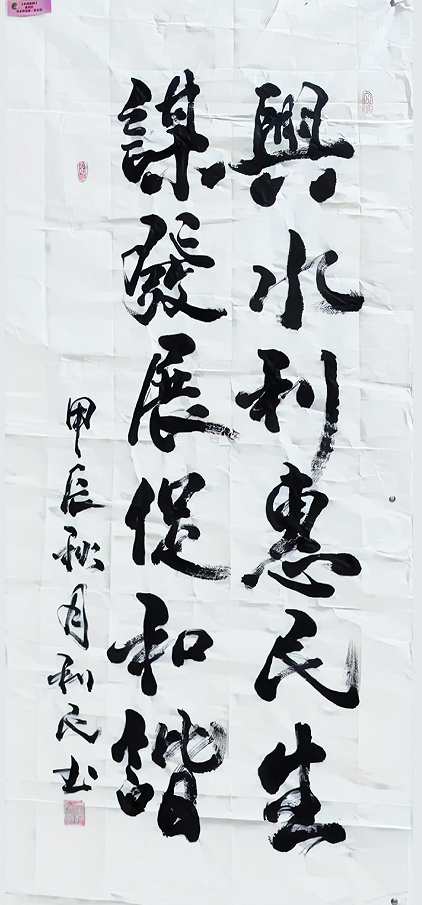 興水利惠民生
謀發展促和諧
甲辰秋月利民书